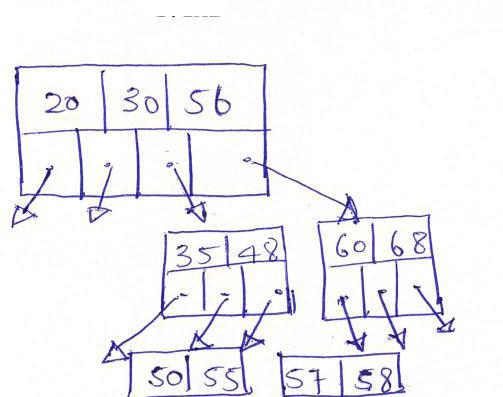 20 30 56
35 48 60 68
50 55 57 58